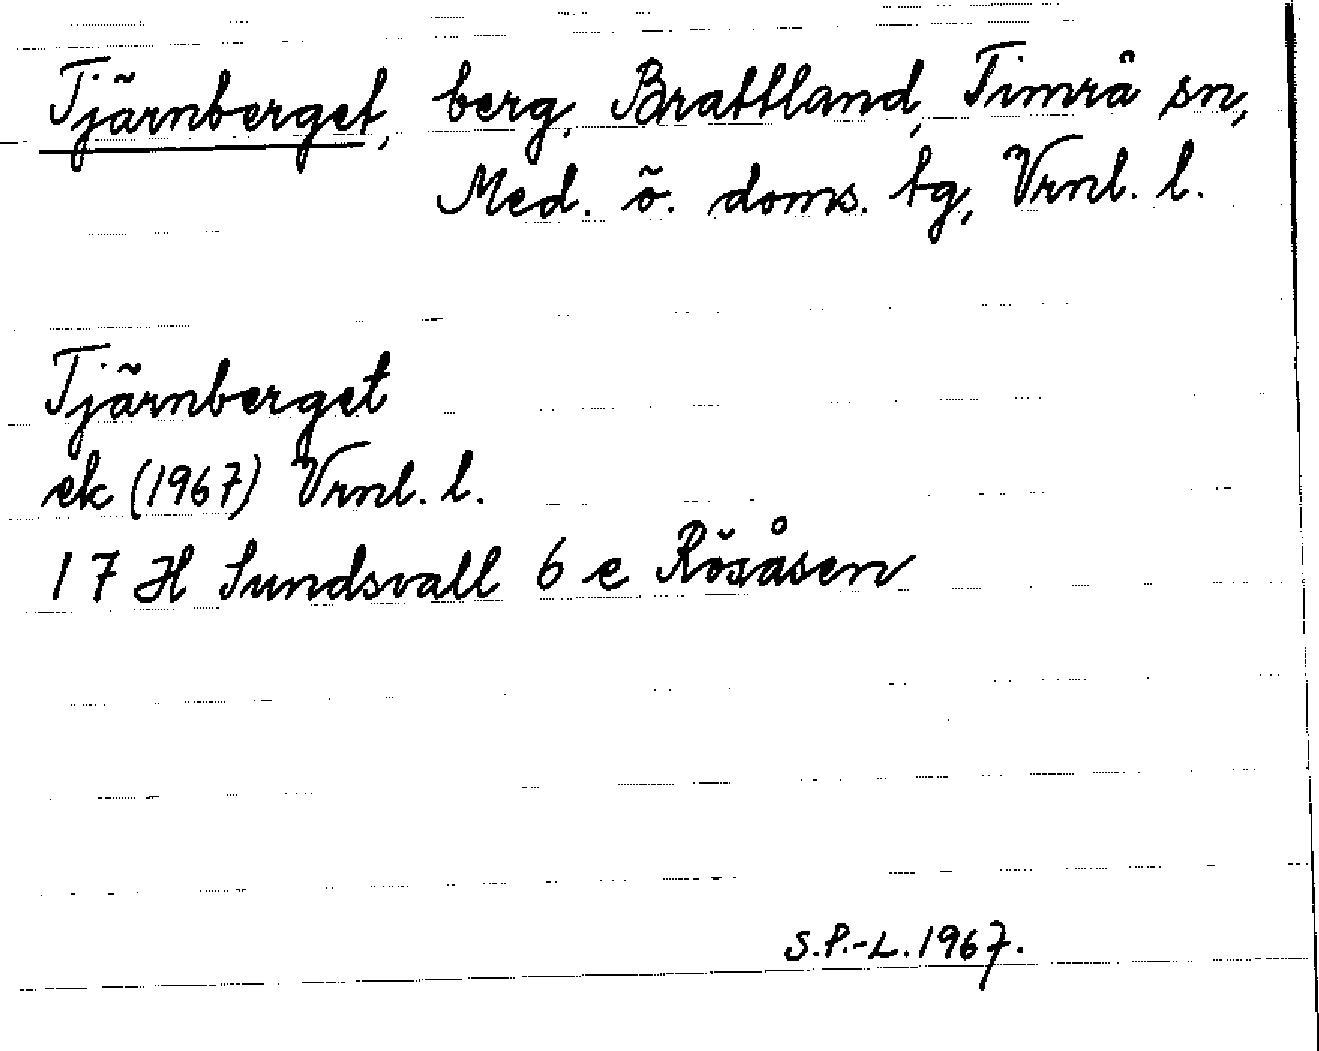 Tjärnberget, berg, Brattland, Timrå sn,
Med. ö. doms. tg, Vrnl. l.
Tjärnberget
ek (1967) Vrnl. l.
17 H Sundsvall 6 e Rösåsen
S.P.-L. 1967.